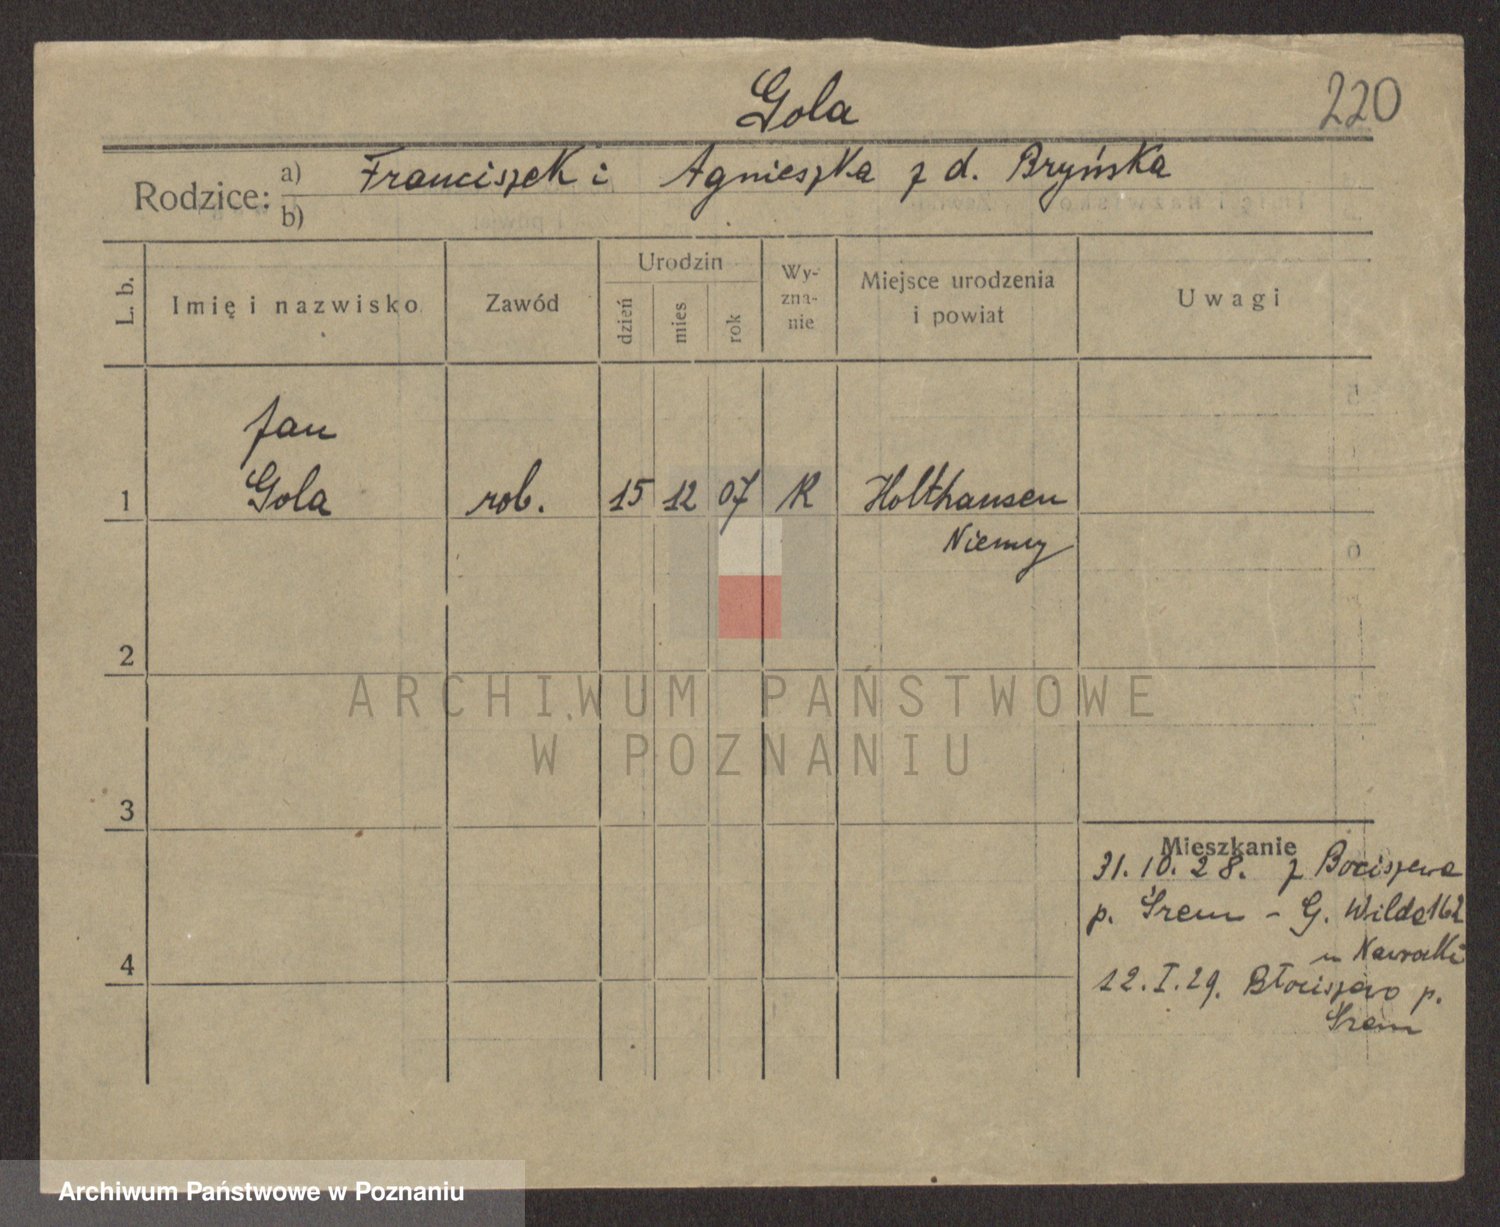 Gola
220
Rodzice: a) Franciszek i Agnieszka z d. Bryńska
b)
L. b. Imię i nazwisko Zawód Urodzin dzień mies rok Wy-zna-nie Miejsce urodzenia i powiat Uwagi
Jan
1 Gola rob. 15 12 07 R Holthausen
Niemcy
2
ARCHIWUM PAŃSTWOWE
W POZNANIU
3
Mieszkanie
31.10.28. z Bociszewa
p. Śrem - G. Wilda 162
u Nawratki
4
12.I.29. Błociszewo p.
Śrem
Archiwum Państwowe w Poznaniu